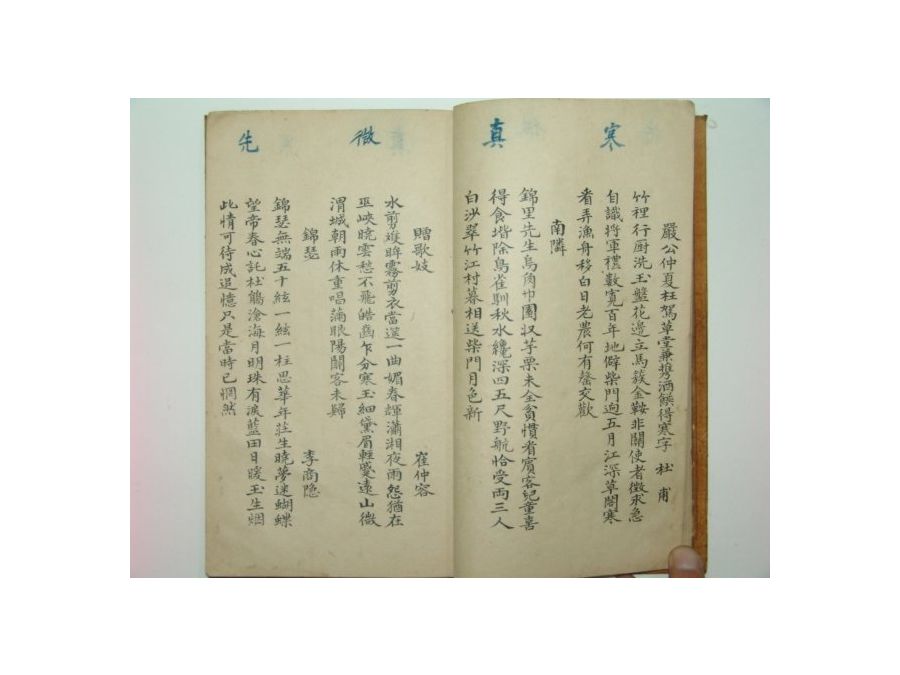 寒
嚴公仲夏枉駕草堂兼携酒饌得寒字 杜甫
竹裡行厨洗玉盤花邊立馬簇金鞍非關使者徴求急
自識將軍禮數寛百年地僻柴門逈五月江深草閣寒
看弄漁舟移白日老農何有罄交歡
真
南隣
錦里先生烏角巾園収芋栗未全貧慣看賓客兒童喜
得食堦除鳥雀馴秋水纔深四五尺野航恰受両三人
白沙翠竹江村暮相送柴門月色新
微
贈歌妓 崔仲容
水剪雙眸霧剪衣當筵一曲媚春輝瀟湘夜雨怨猶在
巫峽曉雲愁不飛皓齒乍分寒玉細黛眉輕蹙遠山微
渭城朝雨休重唱滿眼陽關客未歸
先
錦瑟 李商隐
錦瑟無端五十絃一絃一柱思華年莊生曉夢迷蝴蝶
望帝春心託杜鵑滄海月明珠有淚藍田日暖玉生烟
此情可待成追憶只是當時已惘然